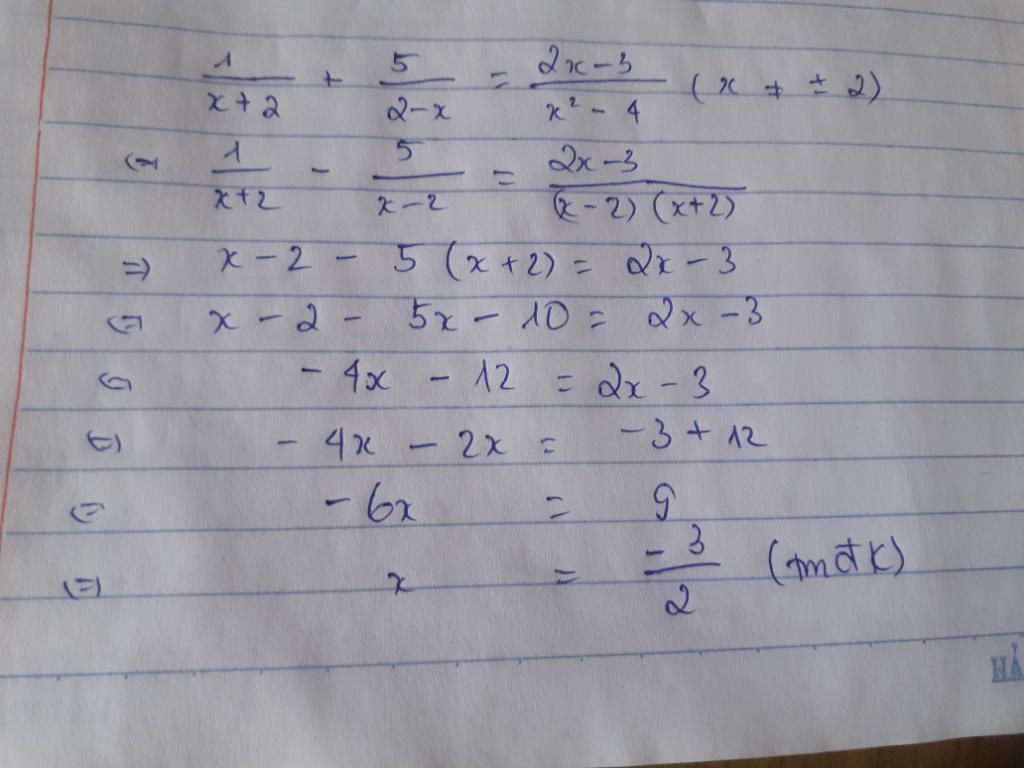 1/(x+2) + 5/(2-x) = (2x-3)/(x² - 4) (x ≠ ± 2)
⇔ 1/(x+2) - 5/(x-2) = (2x-3)/((x-2)(x+2))
⇒ x - 2 - 5(x+2) = 2x - 3
⇔ x - 2 - 5x - 10 = 2x - 3
⇔ - 4x - 12 = 2x - 3
⇔ - 4x - 2x = -3 + 12
⇔ - 6x = 9
⇔ x = -3/2 (tmđk)
HẢ